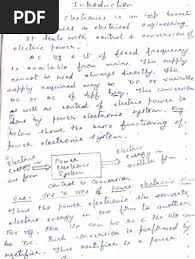 PDF
Introduction
Electronics is an imp branch
electrical engineering.
It deals with control & conversion of
electric power.
AC of fixed frequency
is available from mains. This supply
cannot be used always directly. The
supply required may be DC or variable
AC or variable DC. The conversion
as well as control of electric power is done
by power electronic system. Fig
below shows the basic functioning of
power electronic system.
Electric
energy in
one form
Power
Electronic
System
Electric
energy in
another form
control & conversion
of power electronic
Thus the power electronic converts
electric energy in one form to another
form. For eg. the can convert AC
to DC. Such conversion is performed by
rectifier. Thus rectifier is a power